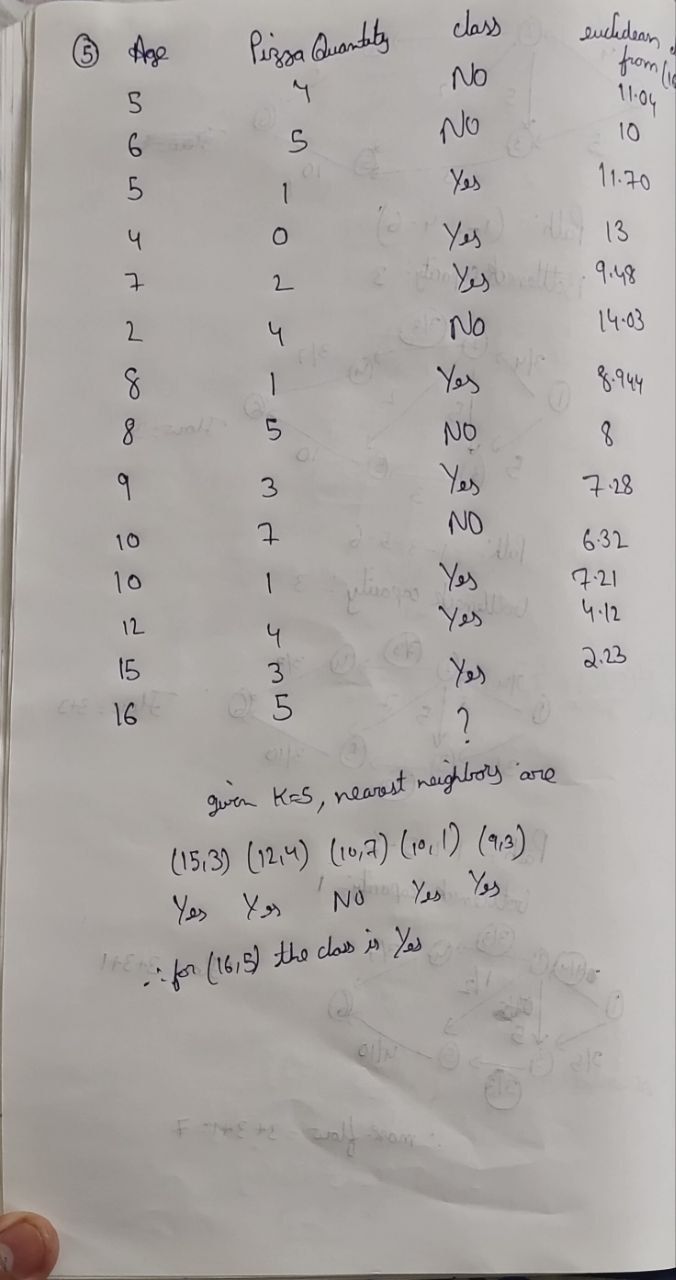 ⑤ Age Pizza Quantity class euclidean
from (16
5 4 NO 11.04
6 5 NO 10
5 1 Yes 11.70
4 0 Yes 13
7 2 Yes 9.48
2 4 NO 14.03
8 1 Yes 8.944
8 5 NO 8
9 3 Yes 7.28
10 7 NO 6.32
10 1 Yes 7.21
12 4 Yes 4.12
15 3 Yes 2.23
16 5 ?
given K=5, nearest neighbors are
(15,3) (12,4) (10,7) (10,1) (9,3)
Yes Yes NO Yes Yes
∴ for (16,5) the class is Yes